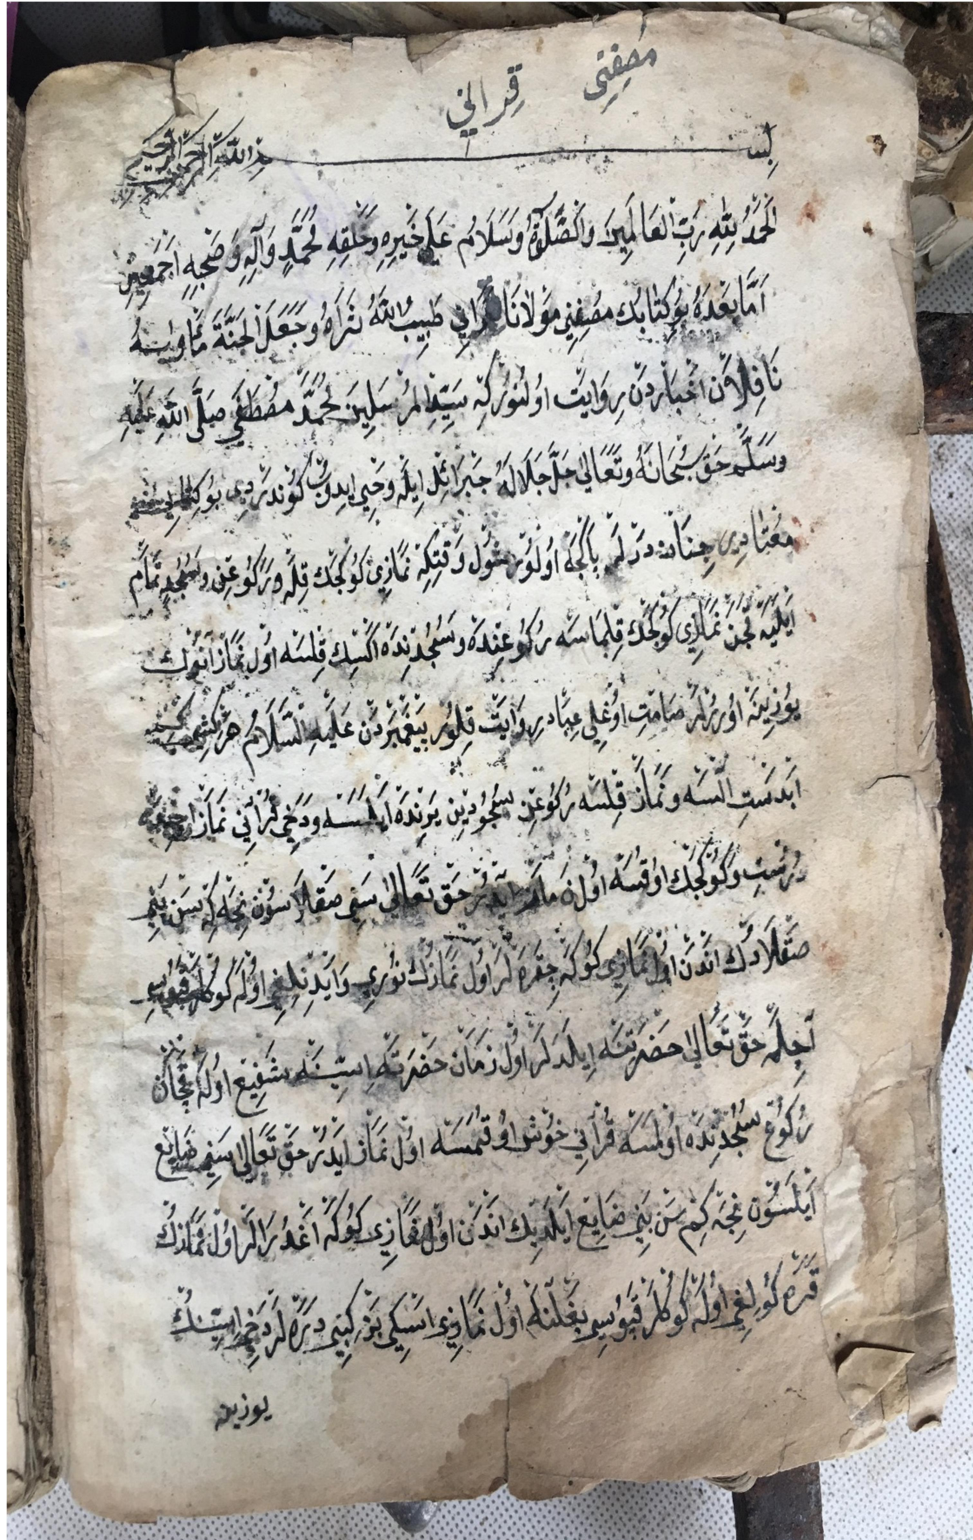 مصفتی قرانی
بسم الله الرحمن الرحيم
اَلْحَمْدُ لِلّٰهِ رَبِّ الْعَالَمِينَ وَالصَّلَوةُ وَسَلَامُ عَلَى خَيْرِهِ وَخَلْقِهِ مُحَمَّدٍ وَآلِهِ وَصَحْبِهِ اَجْمَعِينَ
اَمَّا بَعْدَهُ بُو كِتَابُك مُصَنِّفِى مَوْلَانَا طَيَّبَ اللّٰهُ ثَرَاهُ وَجَعَلَ الْجَنَّةَ
نَاقِلَردَن اَخْبَاردَن رِوَايَت اوُلنُورْكِه سَيِّدِ الْمُرْسَلِينَ مُحَمَّدْ مُصْطَفَى صَلَّى اللّٰه عَلَيْهِ
وَسَلَّم حَقْ سُبْحَانَهُ وَتَعَالَى جَلَّ جَلَالَهُ جَبْرَائِل اِيلَه وَحْيِ ايدُوبْ كُونْدَرْدِى بُو
اوُلُورْ شُول وَقْتِكِه نَمَازِى كُوكْجَك قِلَه وَرُكُوعِن وَسُجُدِ تَمَام
اَيْلَيَه نَمَازِى كُوكْجَك قِلمَاسَه رُكُوعِنْدَه وَسُجُدِنْدَه اَكْسِك قِلسَه اوُل نَمَاز اَنُوك
يُوزِينَه اوُرُرْلَر صَامَت اوُغْلِى عِبَادِ رِوَايَت قِلُور پَيْغَمْبَرْدَن عَلَيْهِ السَّلَامُ هَر
اَبْدَسْت اَلْسَه وَنَمَاز قِلسَه رُكُوعِن سُجُودِين يَرِنْدَه اَيْلَسَه وَدَخِى قُرْآنِى نَمَاز
دُرُسْت وَكُوكْجَك اوُقُسَه اوُل نَمَاز اَيْدُرْ حَقْ تَعَالَى سَنِى صَقْلَاسُون نِجَه كِه سَن بَنِى
صَقْلَادُك اَنْدَن اوُل نَمَازِى كُوكَه چِقَرَه لَر اوُل نَمَازُك نُورِى وَايْدِنْلِغِى اوُلَه كُوكْلَر قَپُوسِى
اَچِلَه حَقْ تَعَالَى حَضْرَتِنَه اِيلَدَلَر اوُل زَمَان حَضْرَتَه شَفِيع اوُلَه قَچَان
رُكُوع سُجُدِنْدَه اوُلمَسَه قُرْآنِى خُوش اوُقُمَسَه اوُل نَمَاز اَيْدُرْ حَقْ تَعَالَى سَنِى ضَايِع
اَيْلَسُون نِجَه كِم سَن بَنِى ضَايِع اَيْلَدِيك اَنْدَن اوُل نَمَازِى كُوكَه اَغْدُرَالَر اوُل نَمَازُك
قَرَه كُولِغِى اوُلَه كُوكْلَر قَپُوسِى بَغْلَنَه اوُل نَمَازِى اَسْكِى بَز كِبِى دِرَه لَر دَخِى
يوزينه